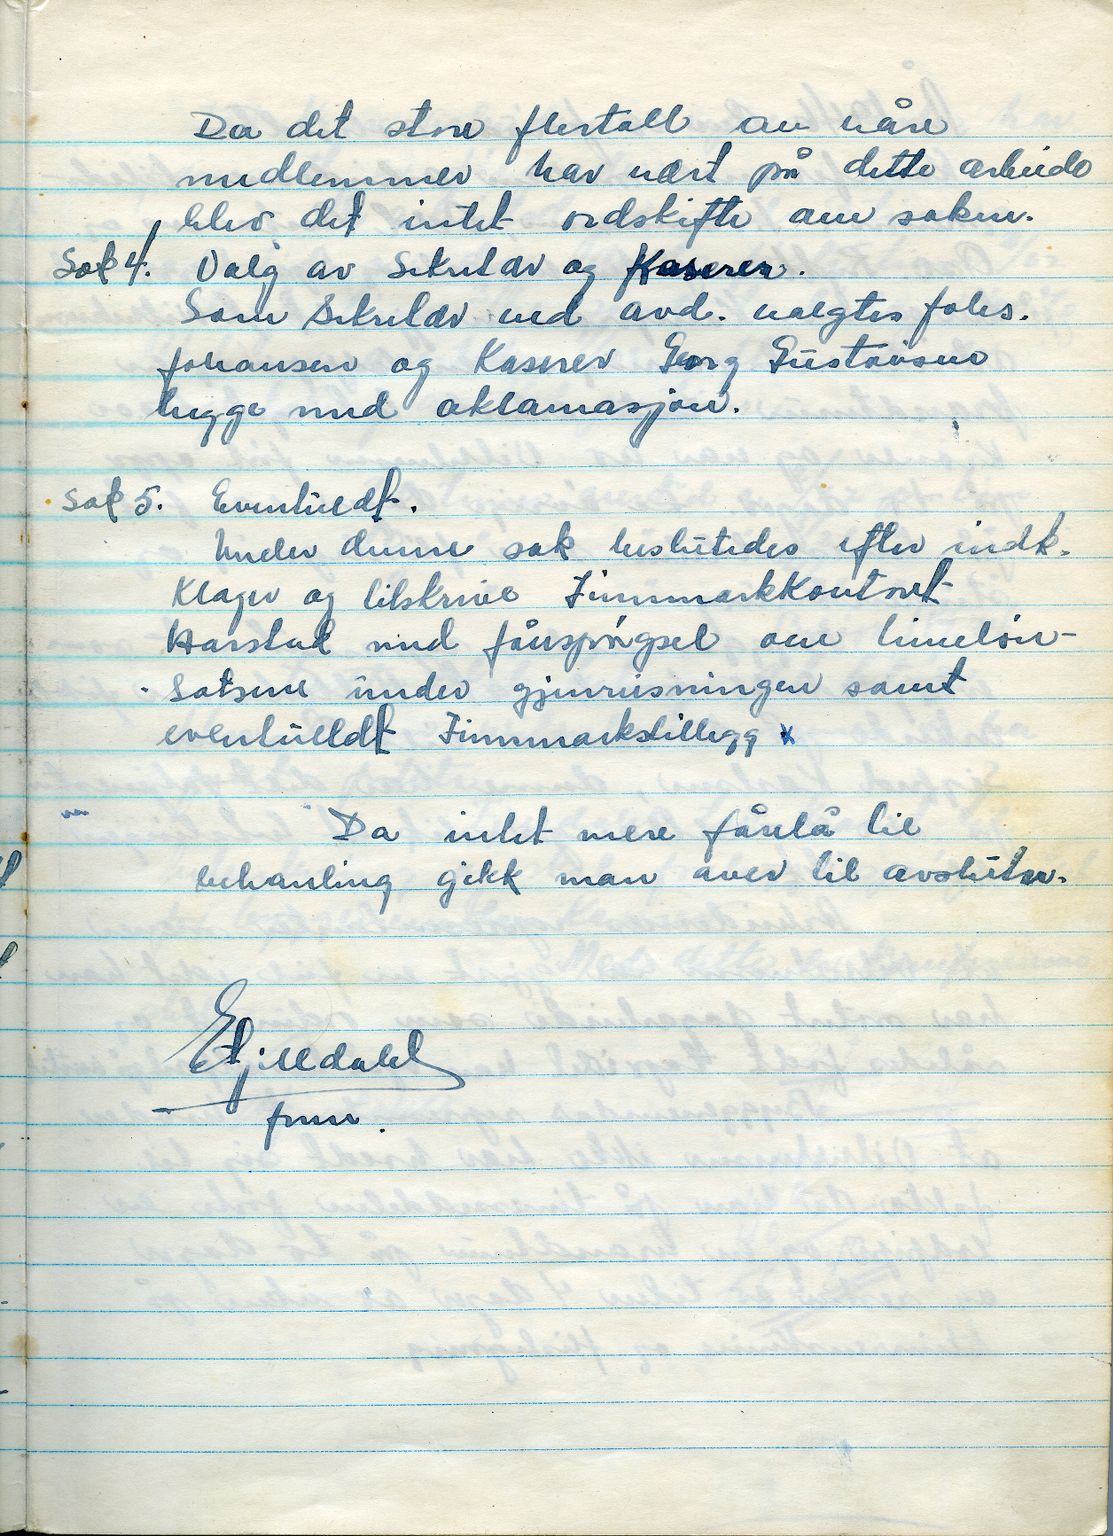 Da det store flertall av våre
medlemmer har vært på dette arbeide
blev det intet ordskifte om saken.
Sak 4. Valg av Sekretær og Kaserer.
Som Sekretær ved avd. valgtes Johs.
Johansen og Kaserer Georg Gustavsen
begge med aklamasjon.
Sak 5. Eventueldt.
Under denne sak beslutedes efter indk.
Klager og tilskrive Finnmarkkontoret
Harstad med fårespørgsel om timelön-
satsene under gjenreisningen samt
eventuelldt Finnmarkstillegg x
Da intet mere fårelå til
behanling gikk man over til avsluten.
form.